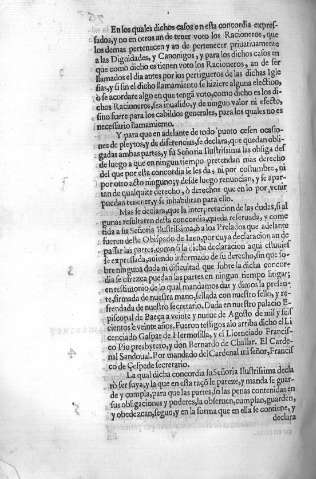 En los quales dichos casos en esta concordia expres-
sados, y no en otros an de tener voto los Racioneros, que
los demas pertenecen y an de pertenecer priuatiuamente
a las Dignidades, y Canonigos, y para los dichos casos en
que como dicho es tienen voto los Racioneros, an de ser
llamados el dia antes por los pertigueros de las dichas Igle
sias, y si sin el dicho llamamiento se hiziere alguna election,
o se acordare algo en que tengã voto, como dicho es los di-
chos Racioneros, sea inualido, y de ningun valor ni efecto,
sino fuere para los cabildos generales, para los quales no es
necessario llamamiento.
Y para que en adelante de todo punto cessen ocasio-
nes de pleytos, y de diferencias, se declara, que quedan obli-
gadas ambas partes, y su Señoria Illustrissima las obliga des
de luego a que en ningun tiempo pretendan mas derecho
del que por esta concordia se les da, ni por costumbre, ni
por otro acto ninguno; y desde luego renuncian, y se apar-
tan de qualquier derecho, o derechos que en lo por venir
puedan tener, y se inhabilitan para ello.
Mas se declara, que la interpretacion de las dudas, si al
gunas resultaren desta concordia, queda reseruada, y come
tida a su Señoria Illustrissima, o a los Prelados que adelante
fueren deste Obispado de Iaen, por cuya declaracion an de
passar las partes, como si la dicha declaracion aqui estuuies
se expressada, auiendo informado de su derecho, sin que so-
bre ninguna duda ni dificultad que sobre la dicha concor-
dia se ofrezca puedan las partes en ningun tiempo litigar;
en testimonio de lo qual mandamos dar y damos la presen-
te, firmada de nuestra mano, sellada con nuestro sello, y re-
frendada de nuestro secretario. Dada en nuestro palacio E-
piscopal de Baeça a veinte y nueue de Agosto de mil y seis
cientos e veinte años. Fueron testigos a lo arriba dicho el Li
cenciado Gaspar de Hermosilla, y el Licenciado Francis-
co Pio presbytero, y don Bernardo de Challar. El Carde-
nal Sandoual. Por mandado del Cardenal mi señor, Francis
co de Cespede secretario.
La qual dicha concordia su Señoria Illustrissima decla
ró ser suya, y la que en esta razõ le parece, y manda se guar-
de y cumpla, para que las partes, so las penas contenidas en
sus obligaciones y poderes, la obseruen, cumplan, guarden,
y obedezcan, segun, y en la forma que en ella se contiene, y
declara